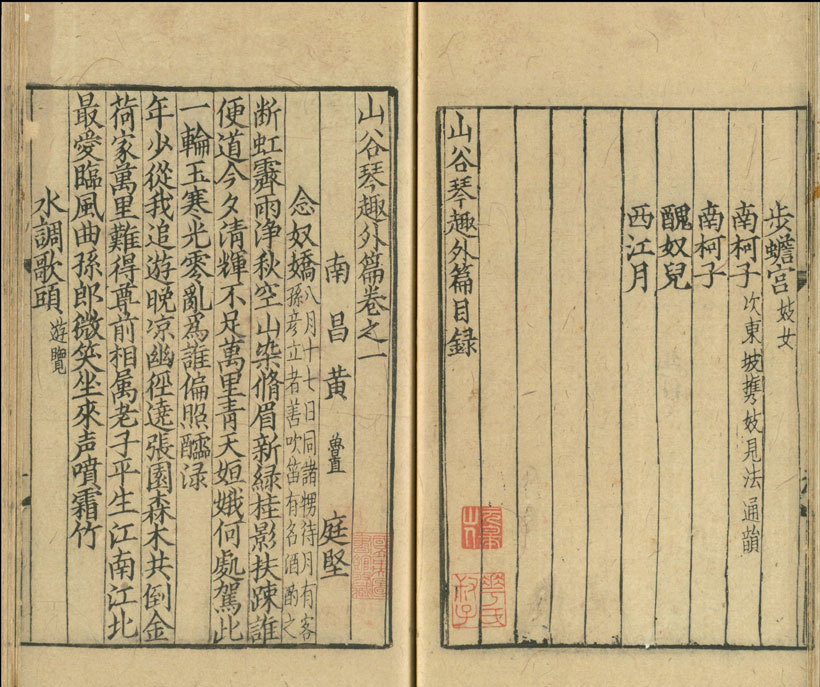 步蟾宫 妓女
南柯子 次東坡携妓見法通韻
南柯子
醜奴兒
西江月
山谷琴趣外篇目録
山谷琴趣外篇卷之一
南昌黄 魯直 庭堅
念奴嬌 八月十七日同諸甥待月有客
孫彦立者善吹笛有名酒酌之
断虹霽雨浄秋空山染脩眉新緑桂影扶踈誰
便道今夕清輝不足萬里青天姮娥何處駕此
一輪玉寒光零亂爲誰偏照醽渌
年少從我追遊晚凉幽徑遶張園森木共倒金
荷家萬里難得尊前相属老子平生江南江北
最愛臨風曲孫郎微笑坐來声噴霜竹
水調歌頭 遊覽